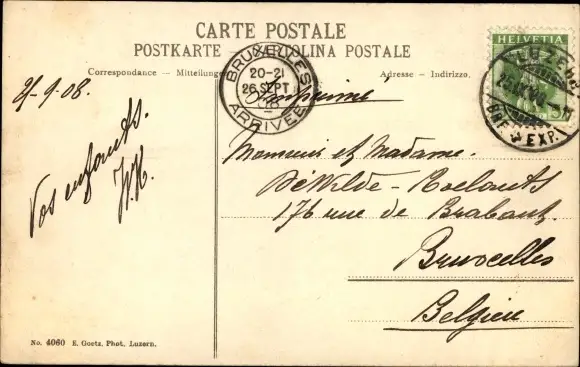 CARTE POSTALE
POSTKARTE — CARTOLINA POSTALE
Correspondance — Mitteilung
Adresse — Indirizzo.
BRUXELLES
20-21
26 SEPT
ARRIVÉE
HELVETIA
LUZERN
BRF. EXP.
Imprimé
21-9-08.
Vos enfants.
Monsieur et Madame.
DéWilde-Roelants
176 rue de Brabant.
Bruxcelles
Belgieu
No. 4060 E. Goetz, Phot. Luzern.